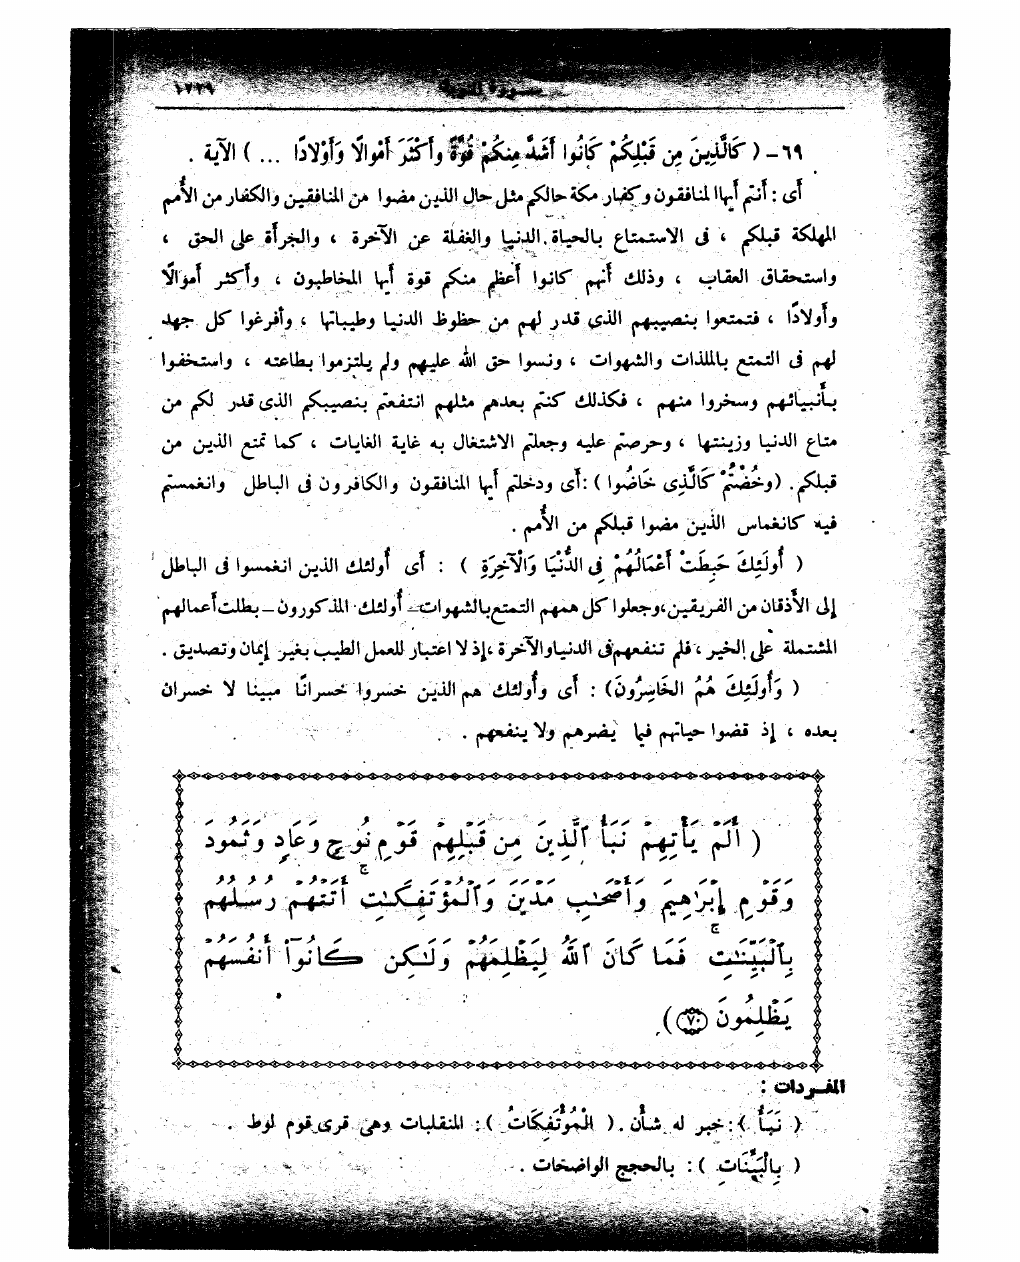 سورة التوبة ١٧٢٩
٦٩ – ( كَالَّذِينَ مِن قَبْلِكُمْ كَانُوا أَشَدَّ مِنكُمْ قُوَّةً وَأَكْثَرَ أَمْوالًا وَأَوْلَادًا ... ) الآية .
أى : أنتم أيها المنافقون وكفار مكة حالكم مثل حال الذين مضوا من المنافقين والكفار من الأُمم
المهلكة قبلكم ، فى الاستمتاع بالحياة الدنيا والغفلة عن الآخرة ، والجرأة على الحق ،
واستحقاق العقاب ، وذلك أنهم كانوا أعظم منكم قوة أيها المخاطبون ، وأكثر أموالًا
وأولادًا ، فتمتعوا بنصيبهم الذى قدر لهم من حظوظ الدنيا وطيباتها ، وأفرغوا كل جهد
لهم فى التمتع بالملذات والشهوات ، ونسوا حق الله عليهم ولم يلتزموا بطاعته ، واستخفوا
بأنبيائهم وسخروا منهم ، فكذلك كنتم بعدهم مثلهم انتفعتم بنصيبكم الذى قدر لكم من
متاع الدنيا وزينتها ، وحرصتم عليه وجعلتم الاشتغال به غاية الغايات ، كما تمتع الذين من
قبلكم . (وخُضْتُمْ كَالَّذِى خَاضُوا ) : أى ودخلتم أيها المنافقون والكافرون فى الباطل وانغمستم
فيه كانغماس الذين مضوا قبلكم من الأُمم .
( أُولَئِكَ حَبِطَتْ أَعْمَالُهُمْ فِى الدُّنْيَا وَالْآخِرَةِ ) : أى أُولئك الذين انغمسوا فى الباطل
إلى الأذقان من الفريقين، وجعلوا كل همهم التمتع بالشهوات – أُولئك المذكورون – بطلت أعمالهم
المشتملة على الخير ، فلم تنفعهم فى الدنيا والآخرة ، إذ لا اعتبار للعمل الطيب بغير إيمان وتصديق .
( وَأُولَئِكَ هُمُ الخَاسِرُونَ) : أى وأُولئك هم الذين خسروا خسرانًا مبينا لا خسران
بعده ، إذ قضوا حياتهم فيما يضرهم ولا ينفعهم .
( أَلَمْ يَأْتِهِمْ نَبَأُ ٱلَّذِينَ مِن قَبْلِهِمْ قَوْمِ نُوحٍ وَعَادٍ وَثَمُودَ
وَقَوْمِ إِبْرَٰهِيمَ وَأَصْحَٰبِ مَدْيَنَ وَٱلْمُؤْتَفِكَٰتِ ۚ أَتَتْهُمْ رُسُلُهُم
بِٱلْبَيِّنَٰتِ ۖ فَمَا كَانَ ٱللَّهُ لِيَظْلِمَهُمْ وَلَٰكِن كَانُوٓا۟ أَنفُسَهُمْ
يَظْلِمُونَ ﴿٧٠﴾ )
المفردات :
( نَبَأُ ) : خبر له شأن . ( الْمُؤْتَفِكَاتُ ) : المنقلبات وهى قرى قوم لوط .
( بِالْبَيِّنَاتِ ) : بالحجج الواضحات .